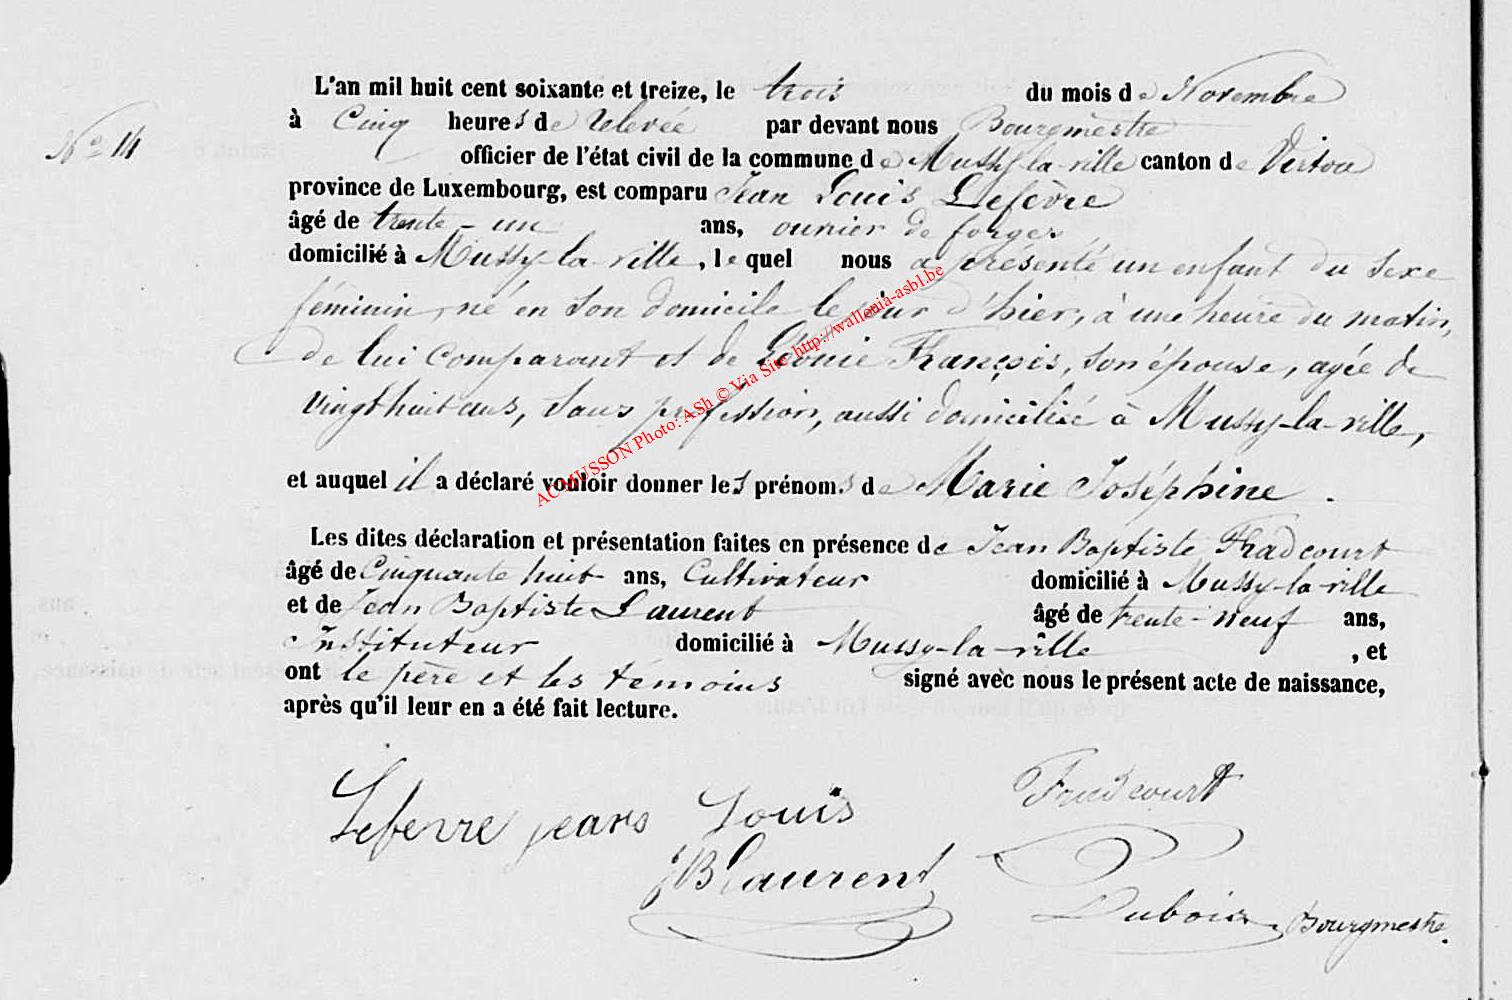 L'an mil huit cent soixante et treize, le trois du mois de Novembre
à Cinq heures de relevée par devant nous Bourgmestre
N° 14
officier de l'état civil de la commune de Mussy-la-ville canton de Virton
province de Luxembourg, est comparu Jean Louis Lefèvre
âgé de trente-un ans, ouvrier de forges
domicilié à Mussy-la-ville, lequel nous a présenté un enfant du sexe
féminin, né en son domicile le jour d'hier, à une heure du matin,
de lui comparant et de Léonie François, son épouse, agée de
vingt huit ans, sans profession, aussi domicilié à Mussy-la-ville,
et auquel il a déclaré vouloir donner les prénoms de Marie Joséphine.
Les dites déclaration et présentation faites en présence de Jean Baptiste Fradcourt
âgé de Cinquante huit ans, Cultivateur domicilié à Mussy-la-ville
et de Jean Baptiste Laurent âgé de trente-neuf ans,
Instituteur domicilié à Mussy-la-ville, et
ont le père et les témoins signé avec nous le présent acte de naissance,
après qu'il leur en a été fait lecture.
Lefevre jean Louis
Fradcourt
JB Laurent
Dubois Bourgmestre.
ACMUSSON Photo: ASh © Via Site http://wallonia-asbl.be